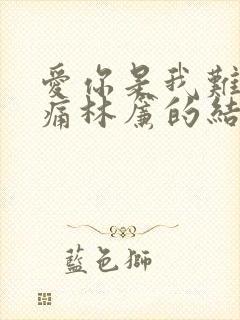 愛你是我難
痛林廉的結
藍色獅